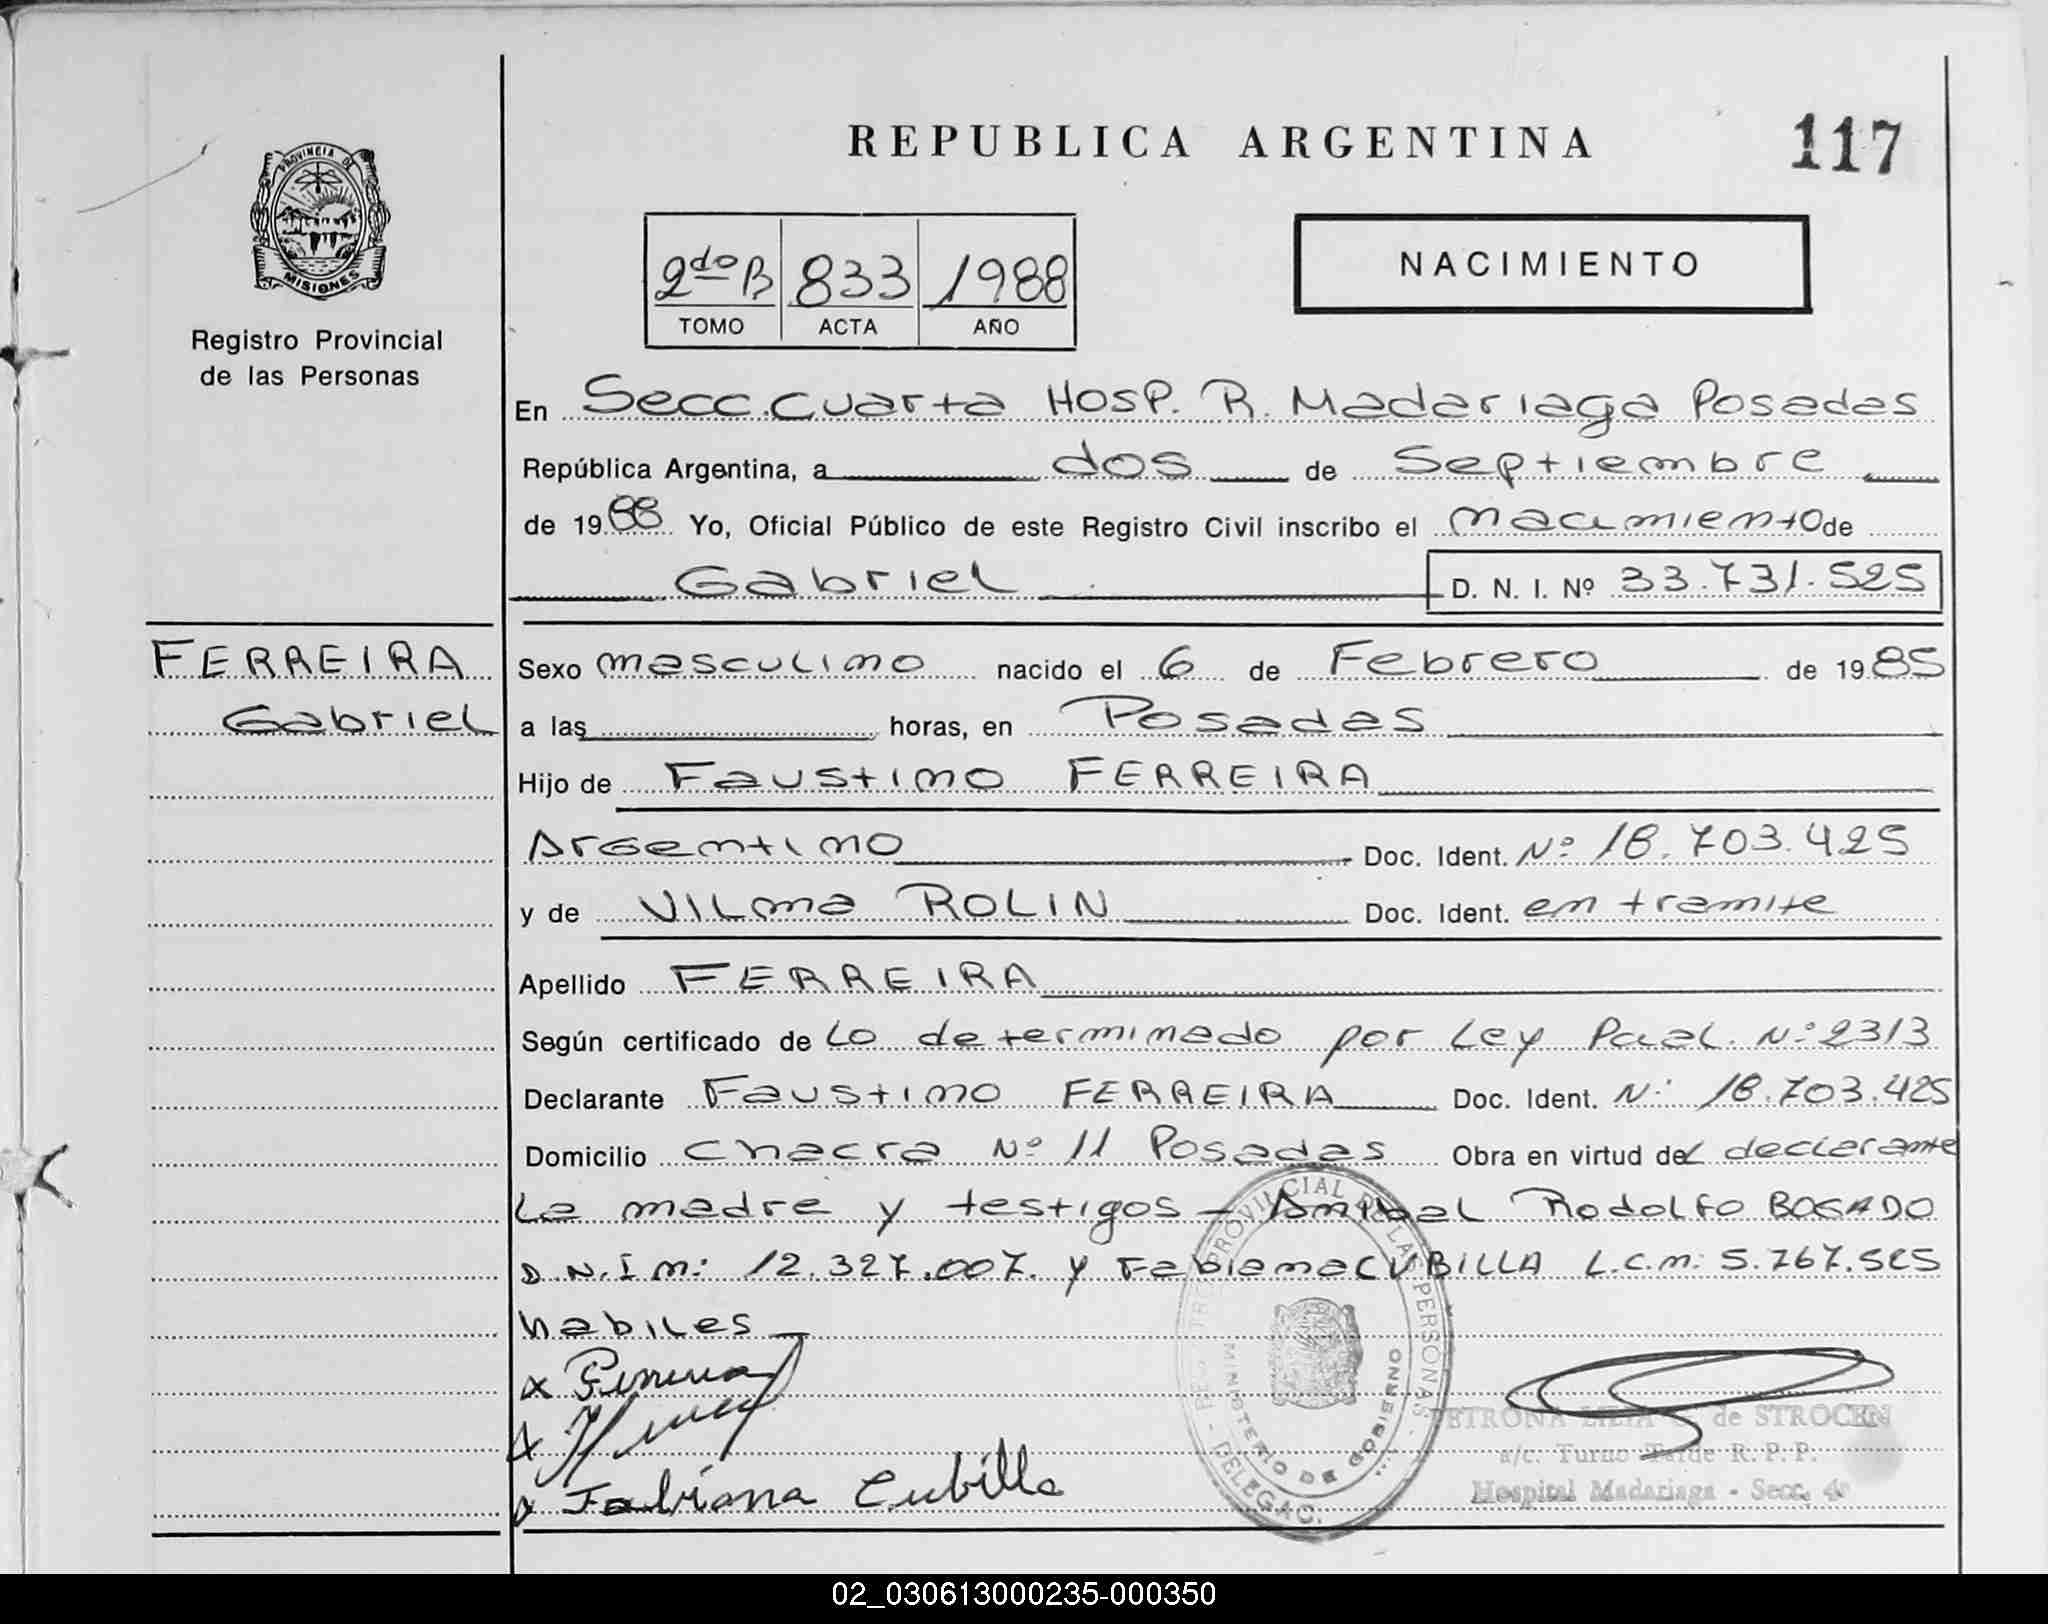 REPUBLICA ARGENTINA
117
PROVINCIA DE
MISIONES
Registro Provincial
de las Personas
2do B 833 1988
TOMO ACTA AÑO
NACIMIENTO
En Secc. Cuarta Hosp. R. Madariaga Posadas
República Argentina, a dos de Septiembre
de 1988 Yo, Oficial Público de este Registro Civil inscribo el nacimiento de
Gabriel D. N. I. Nº 33.731.525
FERREIRA
Gabriel
Sexo masculino nacido el 6 de Febrero de 1985
a las horas, en Posadas
Hijo de Faustino FERREIRA
Argentino Doc. Ident. Nº 18.703.425
y de Vilma ROLIN Doc. Ident. en tramite
Apellido FERREIRA
Según certificado de Lo determinado por Ley Pcial. Nº 2313
Declarante Faustino FERREIRA Doc. Ident. Nº 18.703.425
Domicilio chacra Nº 11 Posadas Obra en virtud del declarante
La madre y testigos - Anibal Rodolfo BOGADO
D.N.I n: 12.327.007. y Fabiana CUBILLA L.C.n: 5.767.525
habiles
x Ferreira
x
x Fabiana Cubilla
PROVINCIAL DE LAS PERSONAS
MINISTERIO DE GOBIERNO
DELEGAC.
PETRONA LILIA de STROCEN
a/c. Turno Tarde R. P. P.
Hospital Madariaga - Secc. 4a
02_030613000235-000350